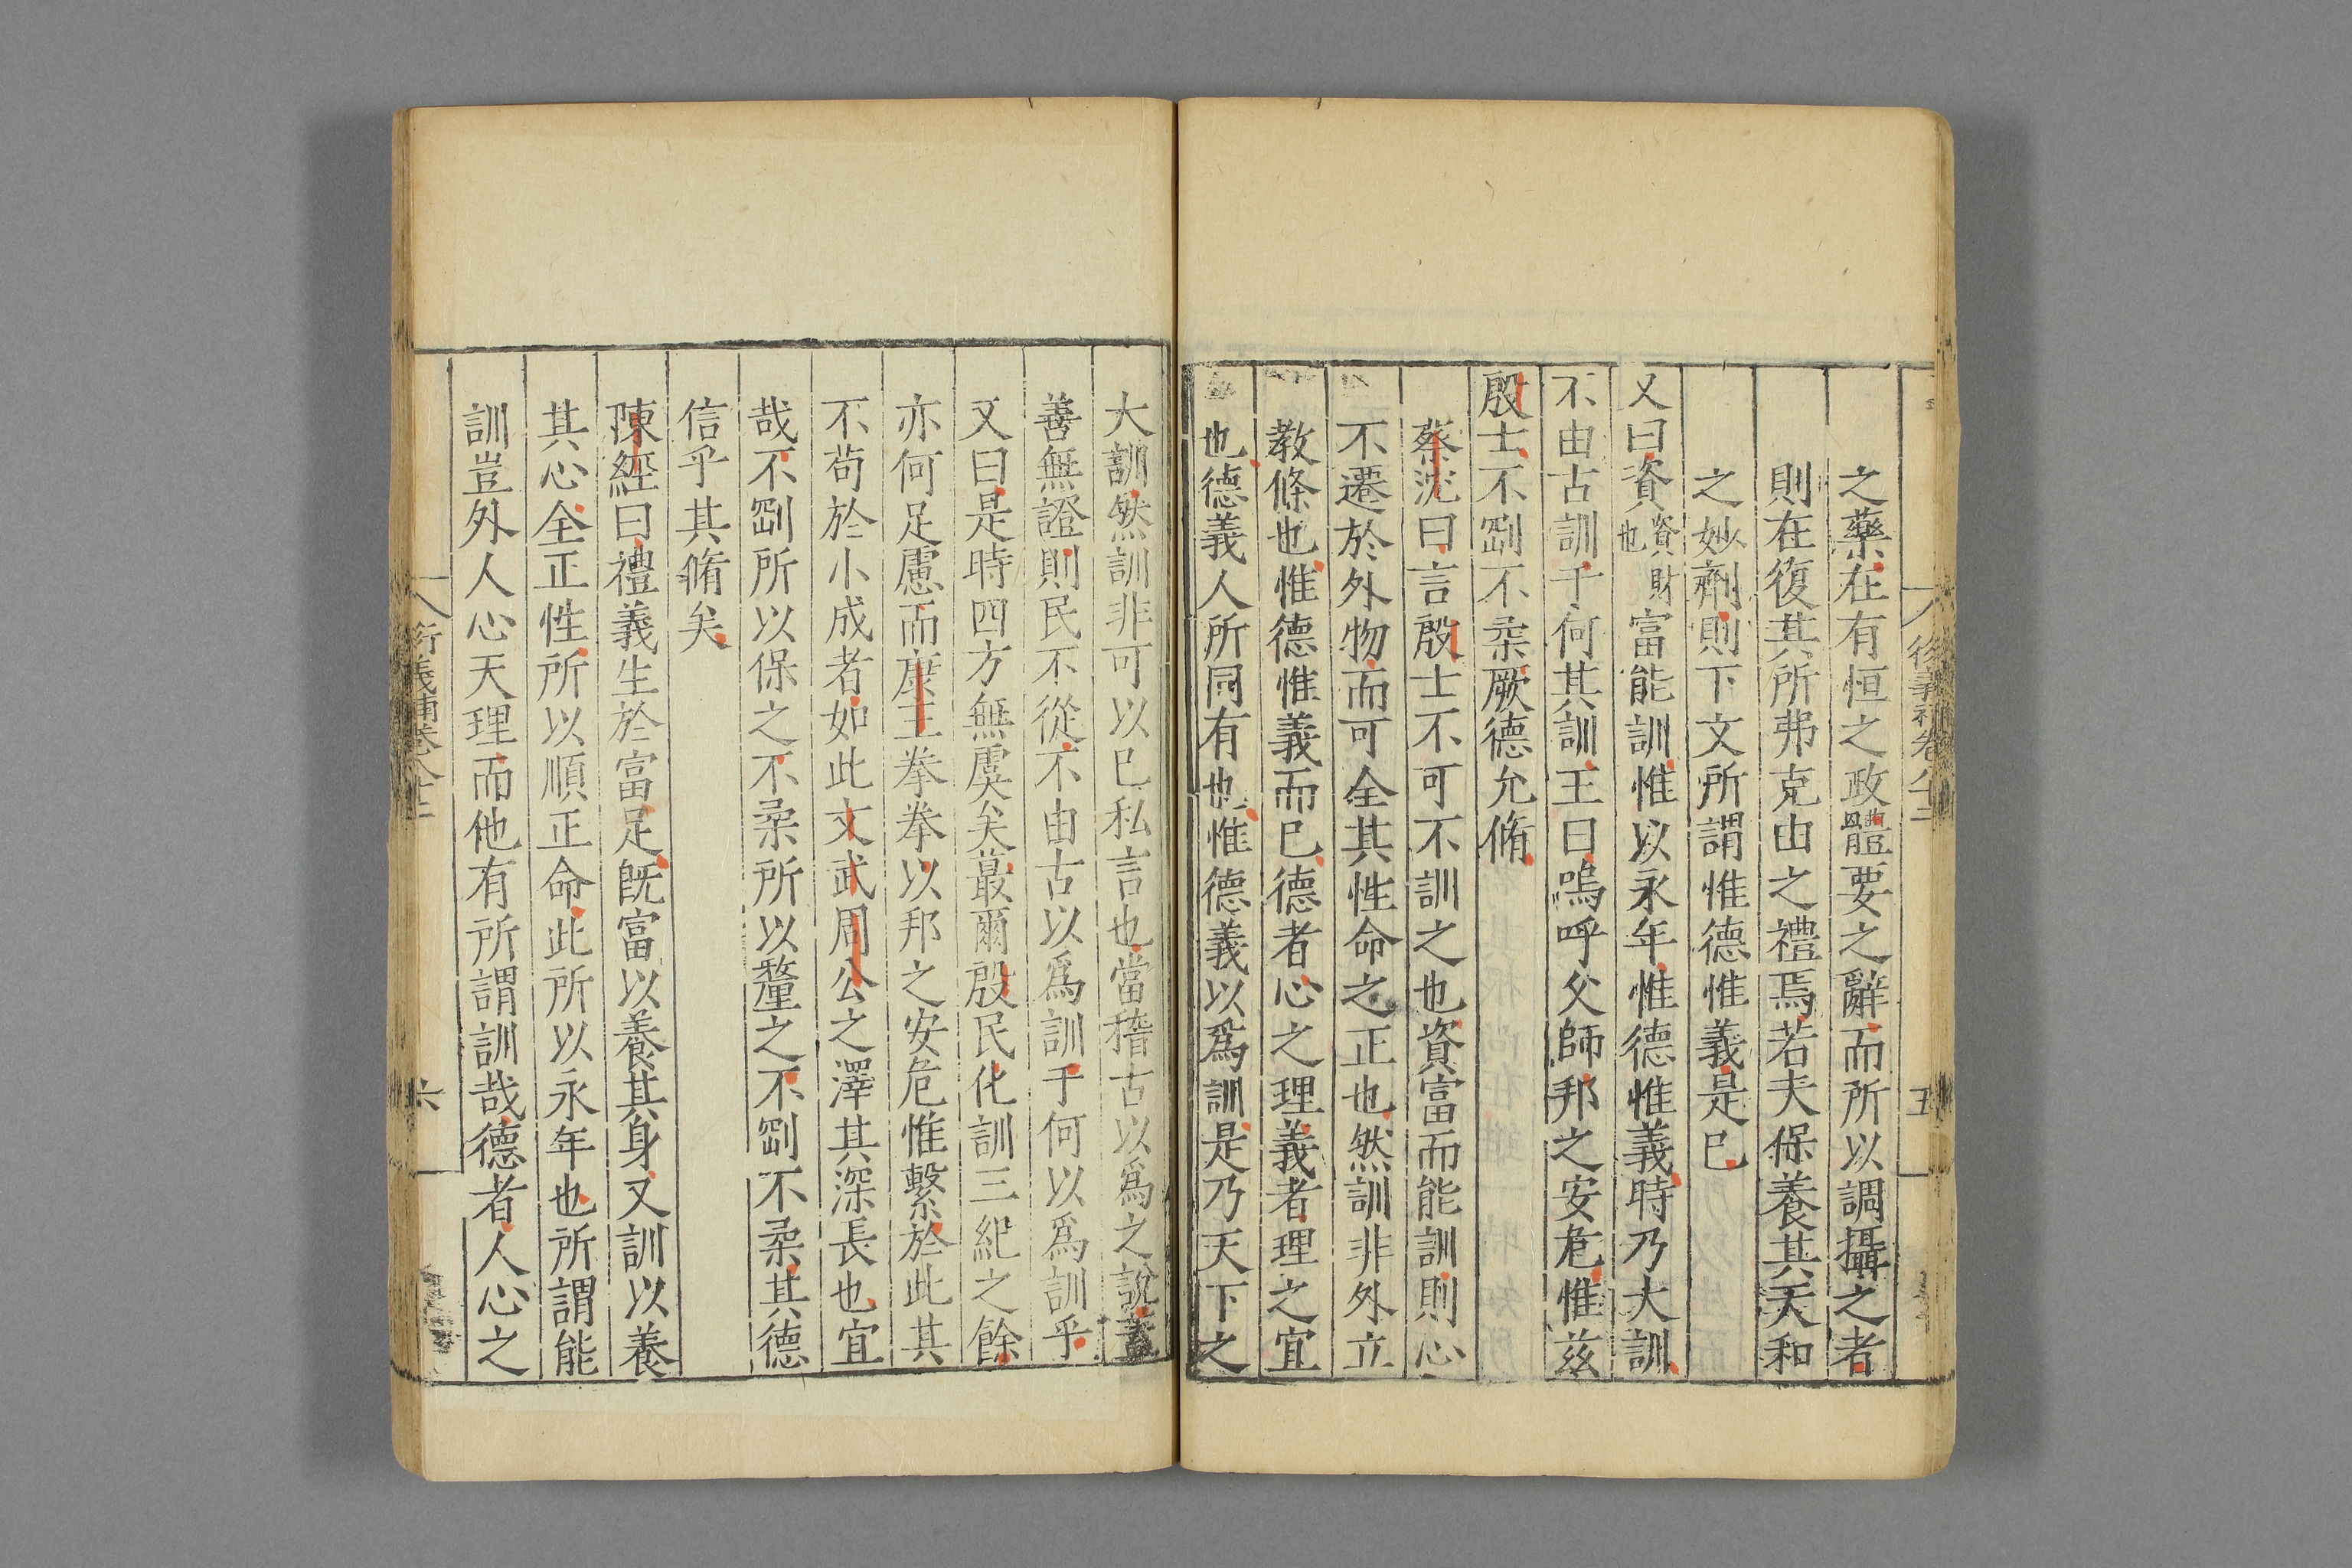 之藥在有恒之政體要之辭而所以調攝之者
則在復其所弗克由之禮焉若夫保養其天和
之妙劑則下文所謂惟德惟義是已
又曰資資財也富能訓惟以永年惟德惟義時乃大訓
不由古訓于何其訓王曰嗚呼父師邦之安危惟茲
殷士不剛不柔厥德允脩
蔡沈曰言殷士不可不訓之也資富而能訓則心
不遷於外物而可全其性命之正也然訓非外立
教條也惟德惟義而已德者心之理義者理之宜
也德義人所同有也惟德義以爲訓是乃天下之
大訓然訓非可以已私言也當稽古以爲之說蓋
善無證則民不從不由古以爲訓于何以爲訓乎
又曰是時四方無虞矣蕞爾殷民化訓三紀之餘
亦何足慮而康王拳拳以邦之安危惟繫於此其
不苟於小成者如此文武周公之澤其深長也宜
哉不剛所以保之不柔所以釐之不剛不柔其德
信乎其脩矣
陳經曰禮義生於富足既富以養其身又訓以養
其心全正性所以順正命此所以永年也所謂能
訓豈外人心天理而他有所謂訓哉德者人心之